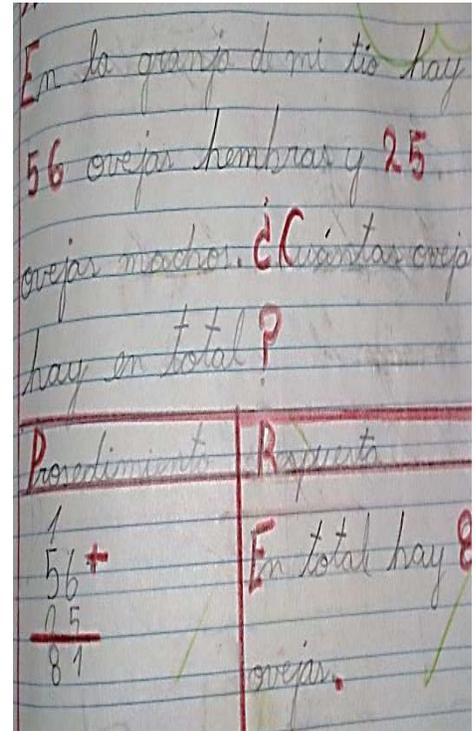 En la granja d mi tio hay
56 ovejas hembras y 25
ovejas machos. ¿Cuántas oveja
hay en total?
Prosedimiento
Respuesta
1
56+
25
81
En total hay 8
ovejas.